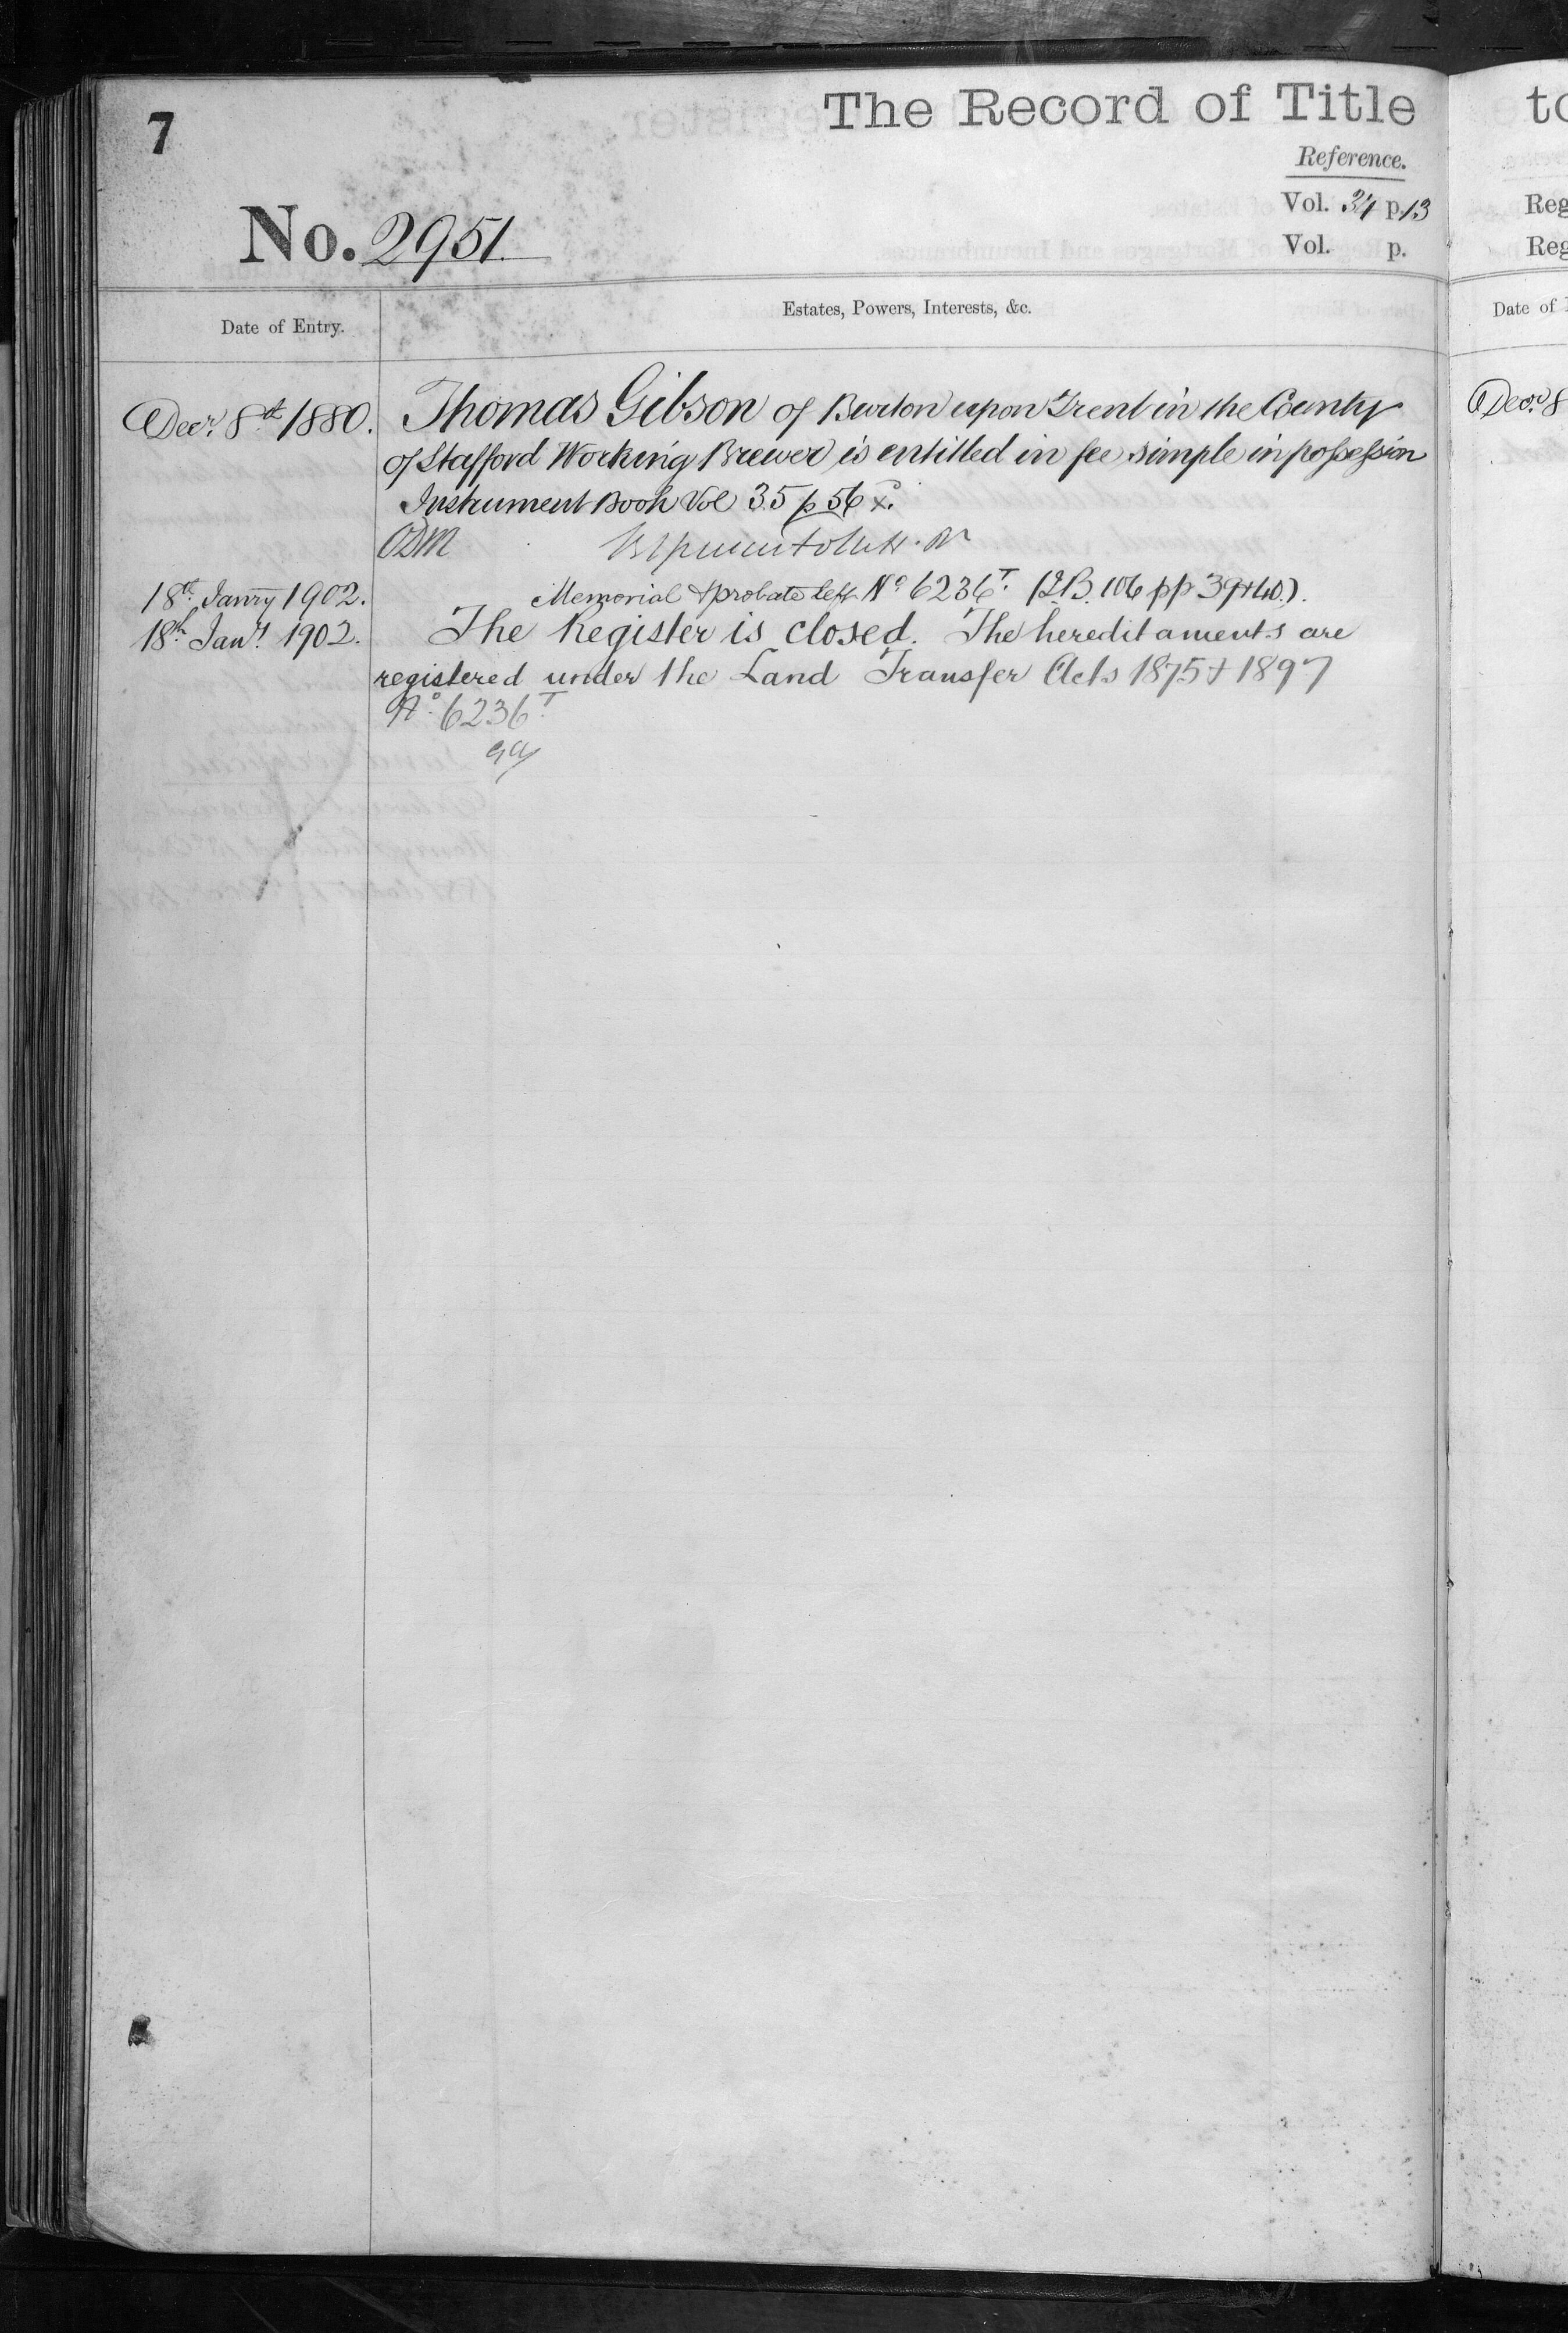 7
The Record of Title
to
Reference.
Vol. 34 p. 13
Reg
No. 2951.
Vol. p.
Reg
Date of Entry.
Estates, Powers, Interests, &c.
Date of
Decr. 8th 1880.
Thomas Gibson of Burton upon Trent in the County
Decr. 8
of Stafford Working Brewer is entitled in fee simple in possession
Instrument Book Vol 35 p 56
18th. Janry 1902.
Memorial & probate left No 6236T. (I.B. 106 pp 39 & 40.).
18th Jany. 1902.
The Register is closed. The hereditaments are
registered under the Land Transfer Acts 1875 & 1897
No. 6236T.